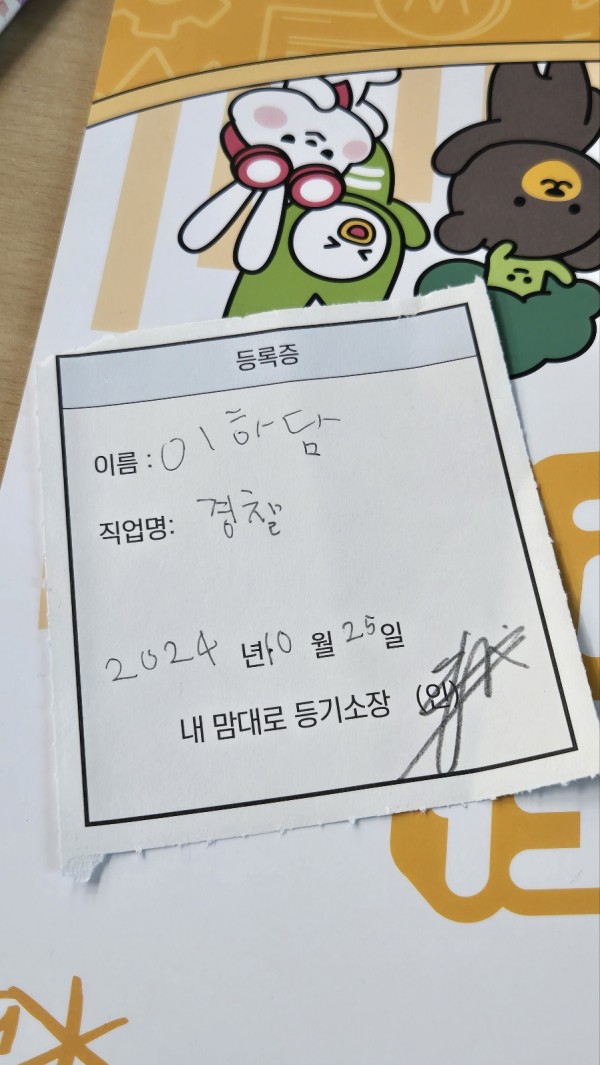 등록증
이름 : 이하담
직업명: 경찰
2024 년 10 월 25일
내 맘대로 등기소장 (인)